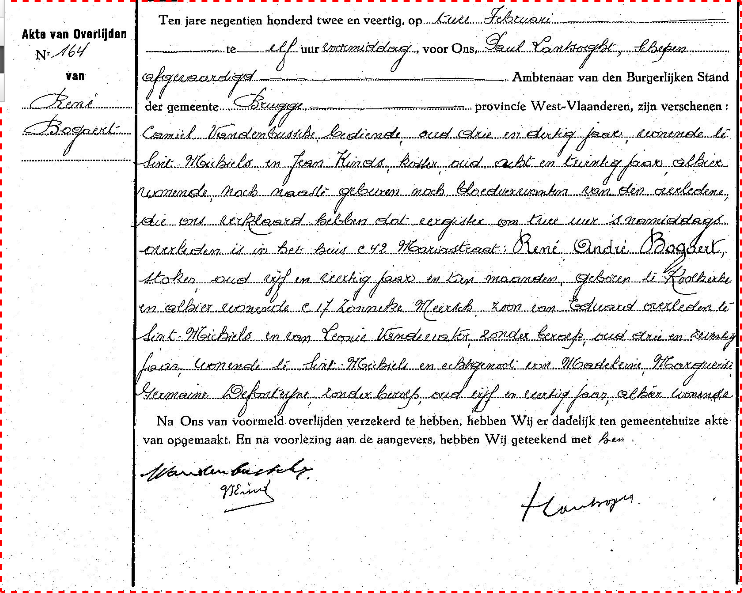 Akta van Overlijden
Nr 164
van
René
Bogaert
Ten jare negentien honderd twee en veertig, op twee Februari
te elf uur voormiddag, voor Ons, Paul Schepen
afgevaardigd Ambtenaar van den Burgerlijken Stand
der gemeente Brugge provincie West-Vlaanderen, zijn verschenen :
Camiel Vandenbussche, bediende, oud drie en dertig jaar, wonende te
Sint Michiels en Jean Kinds, koster, oud acht en twintig jaar, alhier
wonende, noch naaste geburen noch bloedverwanten van den overledene,
die ons verklaard hebben dat eergister om twee uur 's namiddags
overleden is in het huis C 42 Mariastraat: René, André Bogaert,
stoker, oud vijf en veertig jaar en tien maanden, geboren te Koolkerke
en alhier wonende C 17 Zonneke Meersch, zoon van Edward overleden te
Sint-Michiels en van Leonie Vandewater, zonder beroep, oud drie en
jaar, wonende te Sint-Michiels en echtgenoot van Madeleine, Marguerite
Germaine zonder beroep, oud vijf en veertig jaar, alhier wonende
Na Ons van voormeld overlijden verzekerd te hebben, hebben Wij er dadelijk ten gemeentehuize akte
van opgemaakt. En na voorlezing aan de aangevers, hebben Wij geteekend met hen.
Vandenbussche